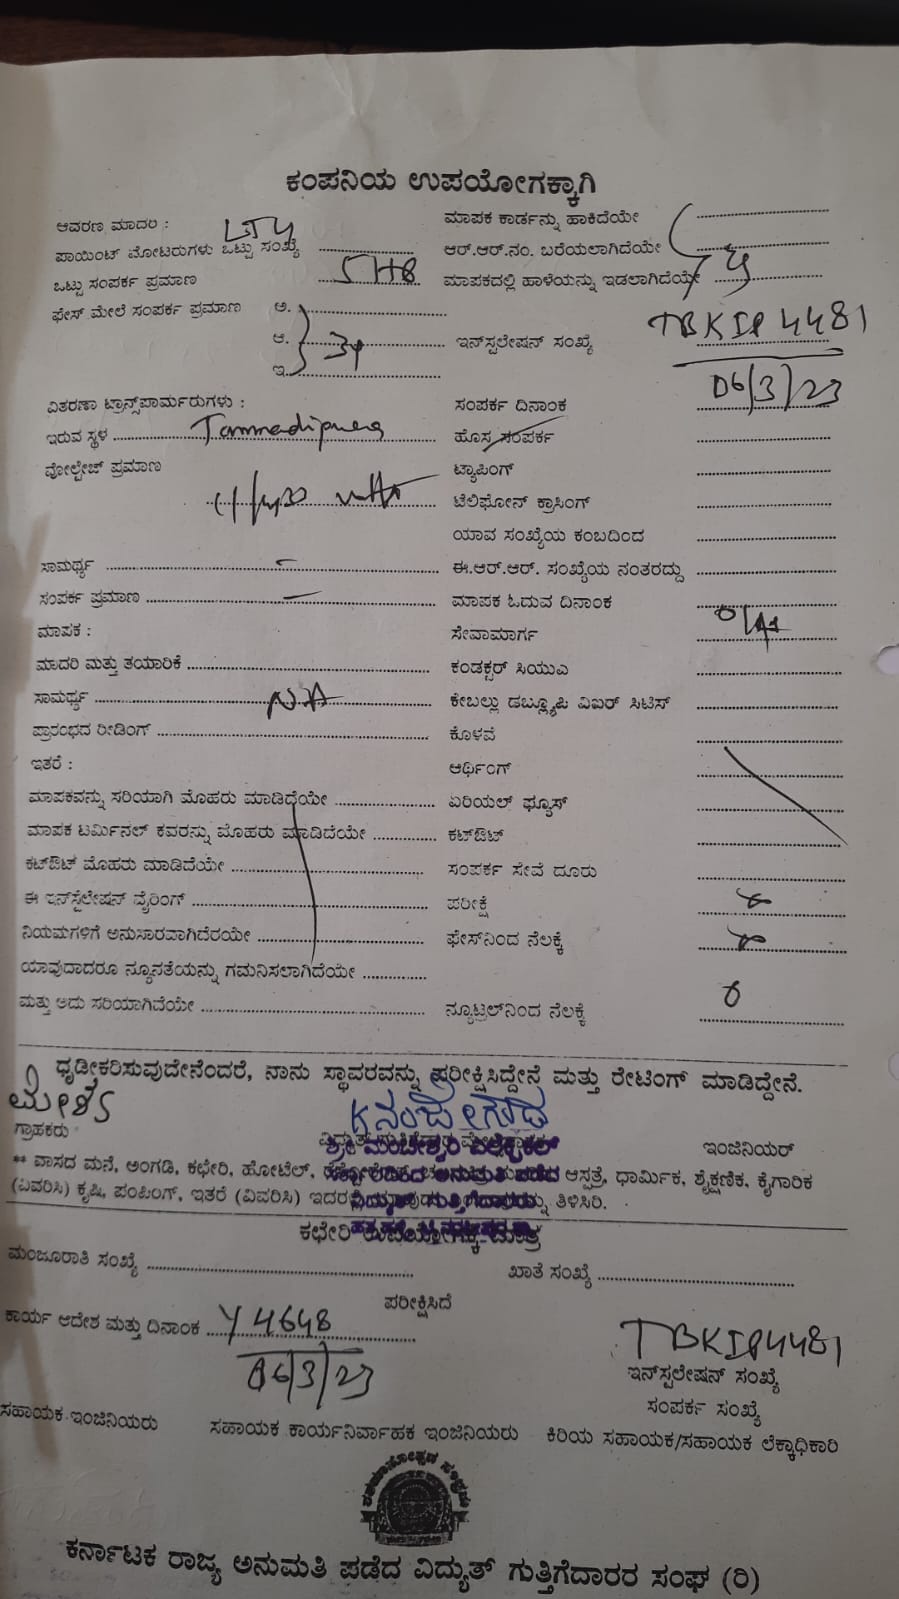 ಕಂಪನಿಯ ಉಪಯೋಗಕ್ಕಾಗಿ
ಆವರಣ ಮಾದರಿ : LT4 ಮಾಪಕ ಕಾರ್ಡನ್ನು ಹಾಕಿದೆಯೇ
ಪಾಯಿಂಟ್ ಮೋಟರುಗಳು ಒಟ್ಟು ಸಂಖ್ಯೆ ಆರ್.ಆರ್.ನಂ. ಬರೆಯಲಾಗಿದೆಯೇ
ಒಟ್ಟು ಸಂಪರ್ಕ ಪ್ರಮಾಣ 5HB ಮಾಪಕದಲ್ಲಿ ಹಾಳೆಯನ್ನು ಇಡಲಾಗಿದೆಯೇ
ಫೇಸ್ ಮೇಲೆ ಸಂಪರ್ಕ ಪ್ರಮಾಣ ಅ.
ಆ. ಇನ್‌ಸ್ಟಲೇಷನ್ ಸಂಖ್ಯೆ TBKIP4481
ಇ.
ವಿತರಣಾ ಟ್ರಾನ್ಸ್‌ಪಾರ್ಮರುಗಳು : ಸಂಪರ್ಕ ದಿನಾಂಕ 06/3/23
ಇರುವ ಸ್ಥಳ Tammadipura ಹೊಸ ಸಂಪರ್ಕ
ವೋಲ್ಟೇಜ್ ಪ್ರಮಾಣ ಟ್ಯಾಪಿಂಗ್
ಟೆಲಿಫೋನ್ ಕ್ರಾಸಿಂಗ್
ಯಾವ ಸಂಖ್ಯೆಯ ಕಂಬದಿಂದ
ಸಾಮರ್ಥ್ಯ ಈ.ಆರ್.ಆರ್. ಸಂಖ್ಯೆಯ ನಂತರದ್ದು
ಸಂಪರ್ಕ ಪ್ರಮಾಣ ಮಾಪಕ ಓದುವ ದಿನಾಂಕ
ಮಾಪಕ : ಸೇವಾಮಾರ್ಗ
ಮಾದರಿ ಮತ್ತು ತಯಾರಿಕೆ ಕಂಡಕ್ಟರ್ ಸಿಯುಎ
ಸಾಮರ್ಥ್ಯ NA ಕೇಬಲ್ಲು ಡಬ್ಲ್ಯೂಪಿ ವಿಐರ್ ಸಿಟಿಸ್
ಪ್ರಾರಂಭದ ರೀಡಿಂಗ್ ಕೊಳವೆ
ಇತರೆ : ಆರ್ಥಿಂಗ್
ಮಾಪಕವನ್ನು ಸರಿಯಾಗಿ ಮೊಹರು ಮಾಡಿದೆಯೇ ಏರಿಯಲ್ ಫ್ಯೂಸ್
ಮಾಪಕ ಟರ್ಮಿನಲ್ ಕವರನ್ನು ಮೊಹರು ಮಾಡಿದೆಯೇ ಕಟ್‌ಔಟ್
ಕಟ್‌ಔಟ್ ಮೊಹರು ಮಾಡಿದೆಯೇ ಸಂಪರ್ಕ ಸೇವೆ ದೂರು
ಈ ಇನ್‌ಸ್ಟಲೇಷನ್ ವೈರಿಂಗ್ ಪರೀಕ್ಷೆ
ನಿಯಮಗಳಿಗೆ ಅನುಸಾರವಾಗಿದೆರಯೇ ಫೇಸ್‌ನಿಂದ ನೆಲಕ್ಕೆ
ಯಾವುದಾದರೂ ನ್ಯೂನತೆಯನ್ನು ಗಮನಿಸಲಾಗಿದೆಯೇ
ಮತ್ತು ಅದು ಸರಿಯಾಗಿದೆಯೇ ನ್ಯೂಟ್ರಲ್‌ನಿಂದ ನೆಲಕ್ಕೆ
ಧೃಡೀಕರಿಸುವುದೇನೆಂದರೆ, ನಾನು ಸ್ಥಾವರವನ್ನು ಪರೀಕ್ಷಿಸಿದ್ದೇನೆ ಮತ್ತು ರೇಟಿಂಗ್ ಮಾಡಿದ್ದೇನೆ.
ಗ್ರಾಹಕರು ಇಂಜಿನಿಯರ್
** ವಾಸದ ಮನೆ, ಅಂಗಡಿ, ಕಛೇರಿ, ಹೋಟೆಲ್, ಆಸ್ಪತ್ರೆ, ಧಾರ್ಮಿಕ, ಶೈಕ್ಷಣಿಕ, ಕೈಗಾರಿಕ
(ವಿವರಿಸಿ) ಕೃಷಿ, ಪಂಪಿಂಗ್, ಇತರೆ (ವಿವರಿಸಿ) ತಿಳಿಸಿರಿ.
ಕಛೇರಿ ಉಪಯೋಗಕ್ಕೆ ಮಾತ್ರ
ಮಂಜೂರಾತಿ ಸಂಖ್ಯೆ ಖಾತೆ ಸಂಖ್ಯೆ
ಪರೀಕ್ಷಿಸಿದೆ
ಕಾರ್ಯ ಆದೇಶ ಮತ್ತು ದಿನಾಂಕ Y4648 TBKIP4481
06/3/23 ಇನ್‌ಸ್ಟಲೇಷನ್ ಸಂಖ್ಯೆ
ಸಂಪರ್ಕ ಸಂಖ್ಯೆ
ಸಹಾಯಕ ಇಂಜಿನಿಯರು ಸಹಾಯಕ ಕಾರ್ಯನಿರ್ವಾಹಕ ಇಂಜಿನಿಯರು ಕಿರಿಯ ಸಹಾಯಕ/ಸಹಾಯಕ ಲೆಕ್ಕಾಧಿಕಾರಿ
ಕರ್ನಾಟಕ ರಾಜ್ಯ ಅನುಮತಿ ಪಡೆದ ವಿದ್ಯುತ್ ಗುತ್ತಿಗೆದಾರರ ಸಂಘ (ರಿ)